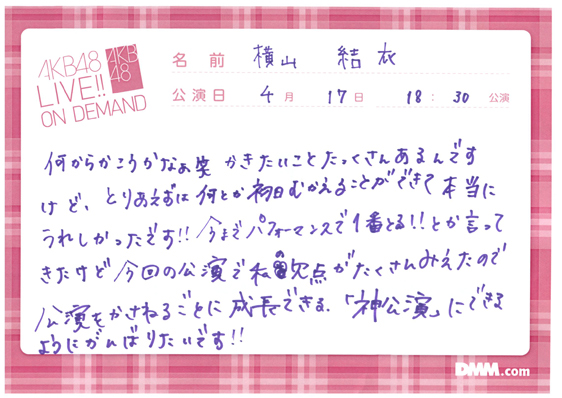 AKB48
LIVE!!
ON DEMAND
AKB
48
名前 横山 結衣
公演日 4月 17日 18:30 公演
何からかこうかなぁ笑 かきたいことたっくさんあるんです
けど、とりあえずは何とか初日むかえることができて本当に
うれしかったです!!今までパフォーマンスで1番とる!!とか言って
きたけど今回の公演で私の欠点がたくさんみえたので
公演をかさねるごとに成長できる、「神公演」にできる
ようにがんばりたいです!!
DMM.com